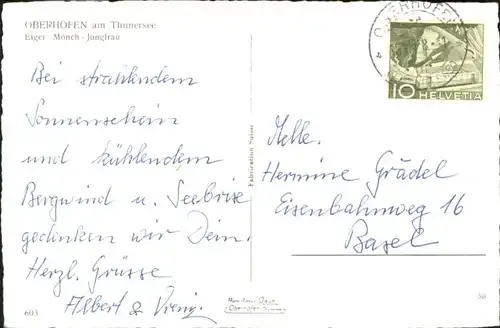 OBERHOFEN am Thunersee
Eiger Mönch - Jungfrau
Bei strahlendem
Sonnenschein
und kühlendem
Bergwind u. Seebrise
gedenken wir Dein.
Herzl. Grüsse
Albert &
603
Fabrication Suisse
OBERHOFEN
10 HELVETIA
Melle.
Hermine Grädel
Eisenbahnweg 16
Basel